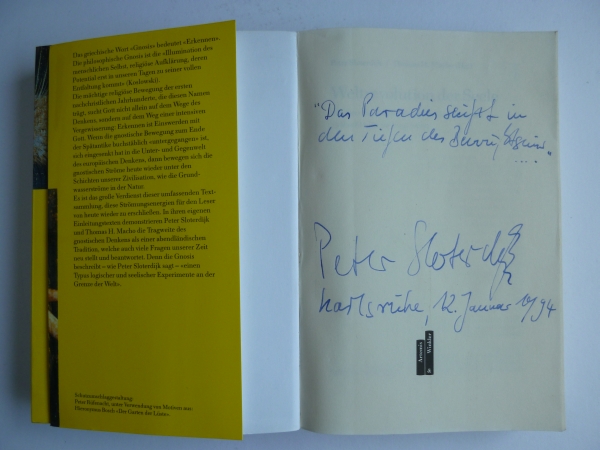 Das griechische Wort «Gnosis» bedeutet «Erkennen».
Die philosophische Gnosis ist die «Illumination des
menschlichen Selbst, religiöse Aufklärung, deren
Potential erst in unseren Tagen zu seiner vollen
Entfaltung kommt» (Koslowski).
Die mächtige religiöse Bewegung der ersten
nachchristlichen Jahrhunderte, die diesen Namen
trägt, sucht Gott nicht allein auf dem Wege des
Denkens, sondern auf dem Weg einer intensiven
Vergewisserung: Erkennen ist Einswerden mit
Gott. Wenn die gnostische Bewegung zum Ende
der Spätantike buchstäblich «untergegangen» ist,
sich eingesenkt hat in die Unter- und Gegenwelt
des europäischen Denkens, dann bewegen sich die
gnostischen Ströme heute wieder unter den
Schichten unserer Zivilisation, wie die Grund-
wasserströme in der Natur.
Es ist das große Verdienst dieser umfassenden Text-
sammlung, diese Strömungsenergien für den Leser
von heute wieder zu erschließen. In ihren eigenen
Einleitungstexten demonstrieren Peter Sloterdijk
und Thomas H. Macho die Tragweite des
gnostischen Denkens als einer abendländischen
Tradition, welche auch viele Fragen unserer Zeit
neu stellt und beantwortet. Denn die Gnosis
beschreibt – wie Peter Sloterdijk sagt – «einen
Typus logischer und seelischer Experimente an der
Grenze der Welt».
Schutzumschlaggestaltung:
Peter unter Verwendung von Motiven aus:
Hieronymus Bosch «Der Garten der Lüste».
"Das Paradies seufzt in
den Tiefen des Bewußtseins"
....
Peter Sloterdijk
Karlsruhe, 12. Januar 1994
Artemis
& Winkler